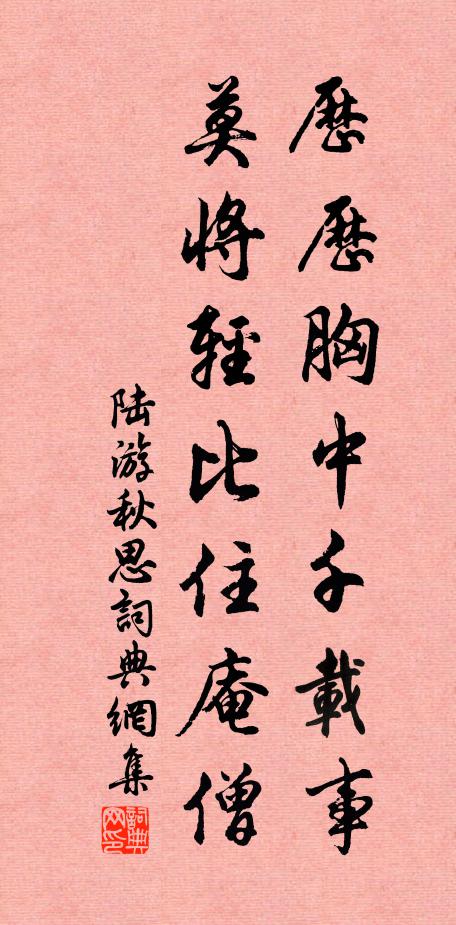 歷歷胸中千載事
莫將輕比住庵僧
陆游秋思詞典網集
詞典网印